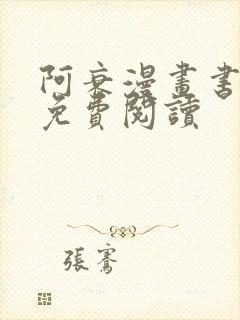 阿衰漫畫書
免費閱讀
張騫